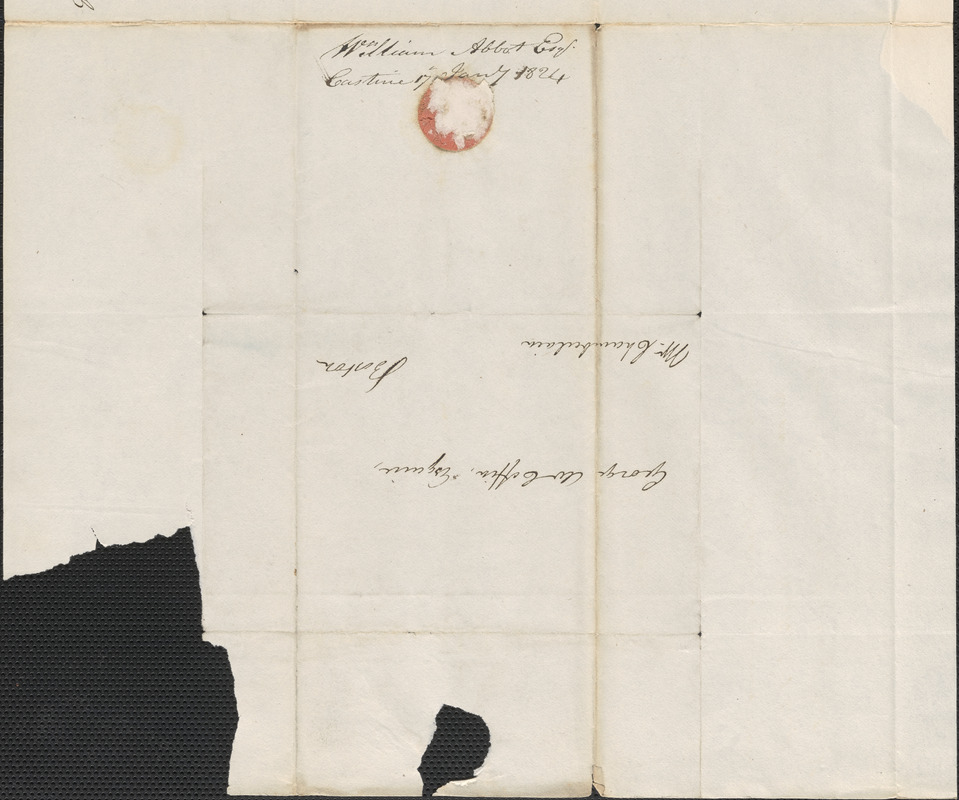 William Abbot Esq.
Castine 17 Jany 1824
George W Coffin, Esquire,
Boston
Mr. Chamberlain